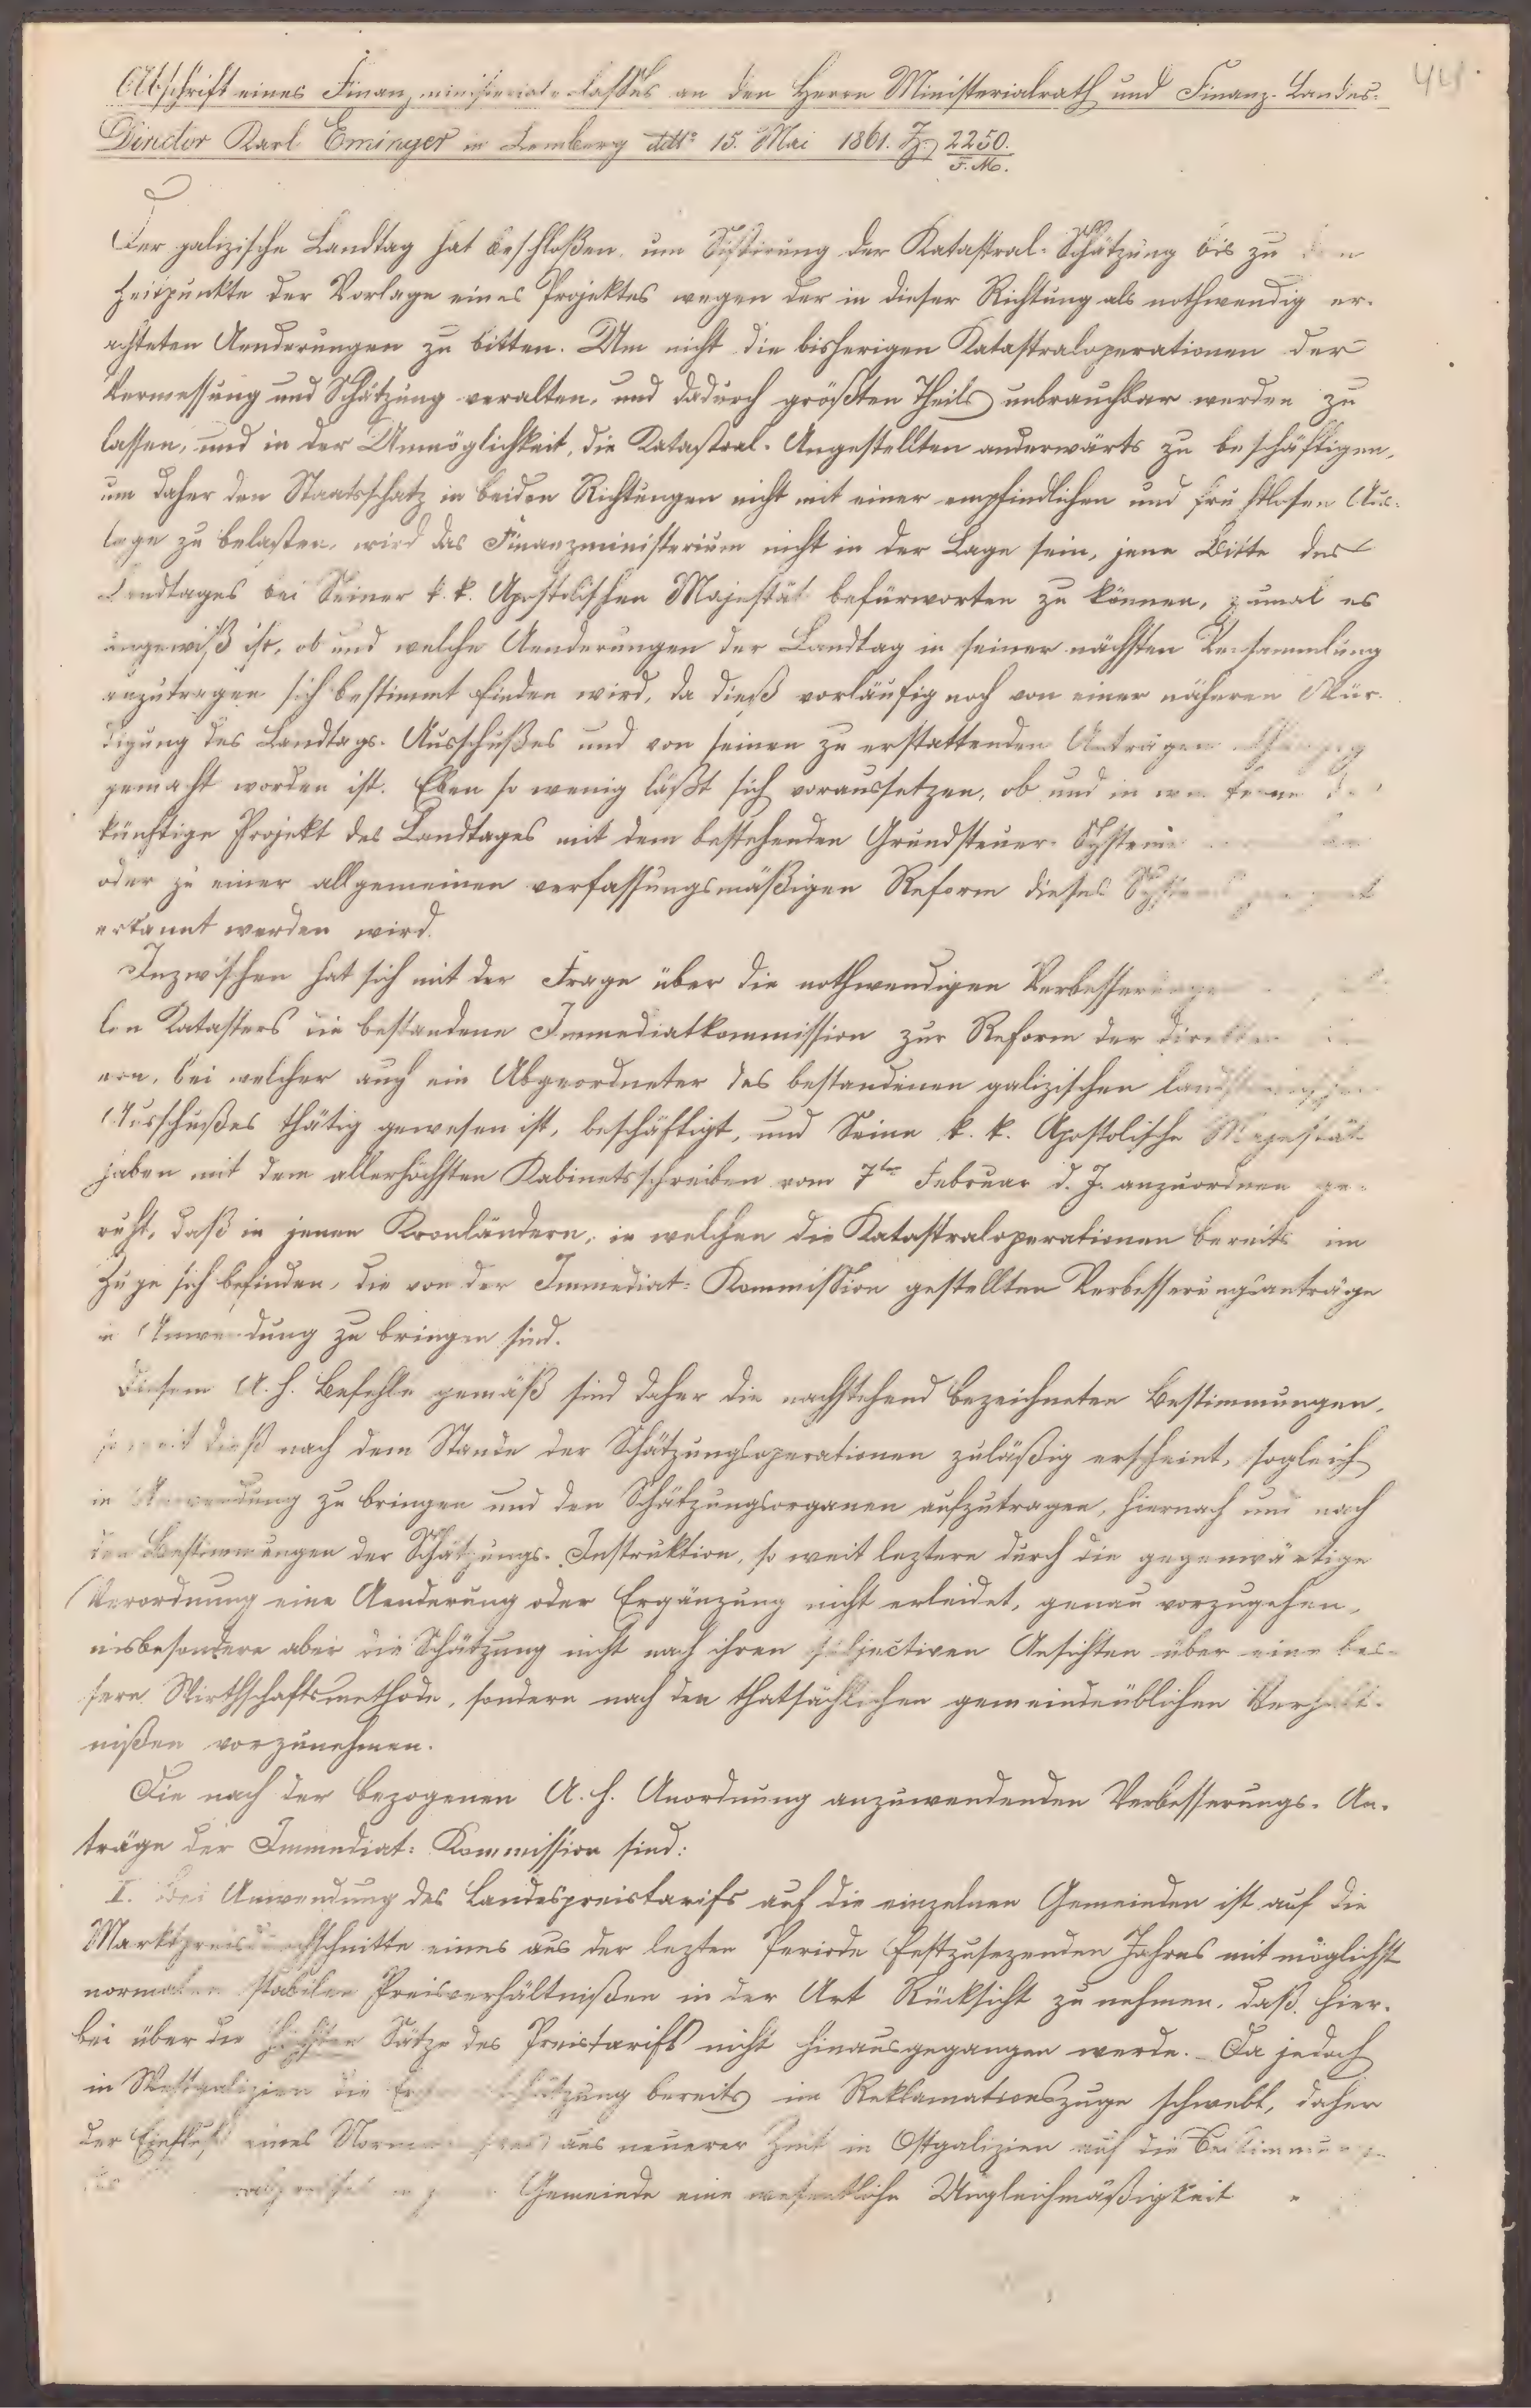 441.
Abschrift eines Finanzministerialerlasses an den Herrn Ministerialrath und Finanz-Landes-
Director Karl Eminger in Lemberg ddto 15. Mai 1861. Z. 2250.
F. M.
Der galizische Landtag hat beschloßen, um Sistirung der Katastral-Schätzung bis zu dem
Zeitpunkte der Vorlage eines Projektes wegen der in dieser Richtung als nothwendig er-
achteten Aenderungen zu bitten. Um nicht die bisherigen Katastraloperationen der
Vermessung und Schätzung veralten, und dadurch größten Theils unbrauchbar werden zu
lassen, und in der Unmöglichkeit, die Katastral-Angestellten anderwärts zu beschäftigen,
um daher den Staatsschatz in beiden Richtungen nicht mit einer empfindlichen und fruchtlosen Aus-
lage zu belasten, wird das Finanzministerium nicht in der Lage sein, jene Bitte des
Landtages bei Seiner k. k. Apostolischen Majestät befürworten zu können, zumal es
ungewiß ist, ob und welche Aenderungen der Landtag in seiner nächsten Versammlung
anzutragen sich bestimmt finden wird, da dieß vorläufig noch von einer näheren Wür-
digung des Landtags-Ausschußes und von seinen zu erstattenden Anträgen abhängig
gemacht worden ist. Eben so wenig läßt sich voraussetzen, ob und in wie ferne das
künftige Projekt des Landtages mit dem bestehenden Grundsteuer-Systeme
oder zu einer allgemeinen verfassungsmäßigen Reform dieses Systems geeignet
erkannt werden wird.
Inzwischen hat sich mit der Frage über die nothwendigen Verbesserungen
len Katasters die bestandene Immediatkommission zur Reform der direkten
ern, bei welcher auch ein Abgeordneter des bestandenen galizischen landständischen
Ausschußes thätig gewesen ist, beschäftigt, und Seine k. k. Apostolische Majestät
haben mit dem allerhöchsten Kabinetsschreiben vom 7ten Februar d. J. anzuordnen ge-
ruht, daß in jenen Kronländern, in welchen die Katastraloperationen bereits im
Zuge sich befinden, die von der Immediat-Kommission gestellten Verbesserungsanträge
in Anwendung zu bringen sind.
Diesem A. h. Befehle gemäß sind daher die nachstehend bezeichneten Bestimmungen,
so weit dieß nach dem Stande der Schätzungsoperationen zuläßig erscheint, sogleich
in Anwendung zu bringen und den Schätzungsorganen aufzutragen, hiernach und nach
den Bestimmungen der Schätzungs-Instruktion, so weit leztere durch die gegenwärtige
Verordnung eine Aenderung oder Ergänzung nicht erleidet, genau vorzugehen,
insbesondere aber die Schätzung nicht nach ihren subjectiven Ansichten über eine bes-
sere Wirthschaftsmethode, sondern nach den thatsächlichen gemeindeüblichen Verhält-
nißen vorzunehmen.
Die nach der bezogenen A. h. Anordnung anzuwendenden Verbesserungs-An-
träge der Immediat-Kommission sind:
I. Bei Anwendung des Landespreistarifs auf die einzelnen Gemeinden ist auf die
Marktpreisdurchschnitte eines aus der lezten Periode festzusezenden Jahres mit möglichst
normalen stabilen Preisverhältnißen in der Art Rücksicht zu nehmen, daß hier-
bei über die höchsten Sätze des Preistarifs nicht hinausgegangen werde. Da jedoch
in Westgalizien die schätzung bereits im Reklamationszuge schwebt, daher
der Einfluß eines aus neuerer Zeit in Ostgalizien auf die Bestimmung
Gemeinde eine wesentliche Ungleichmäßigkeit